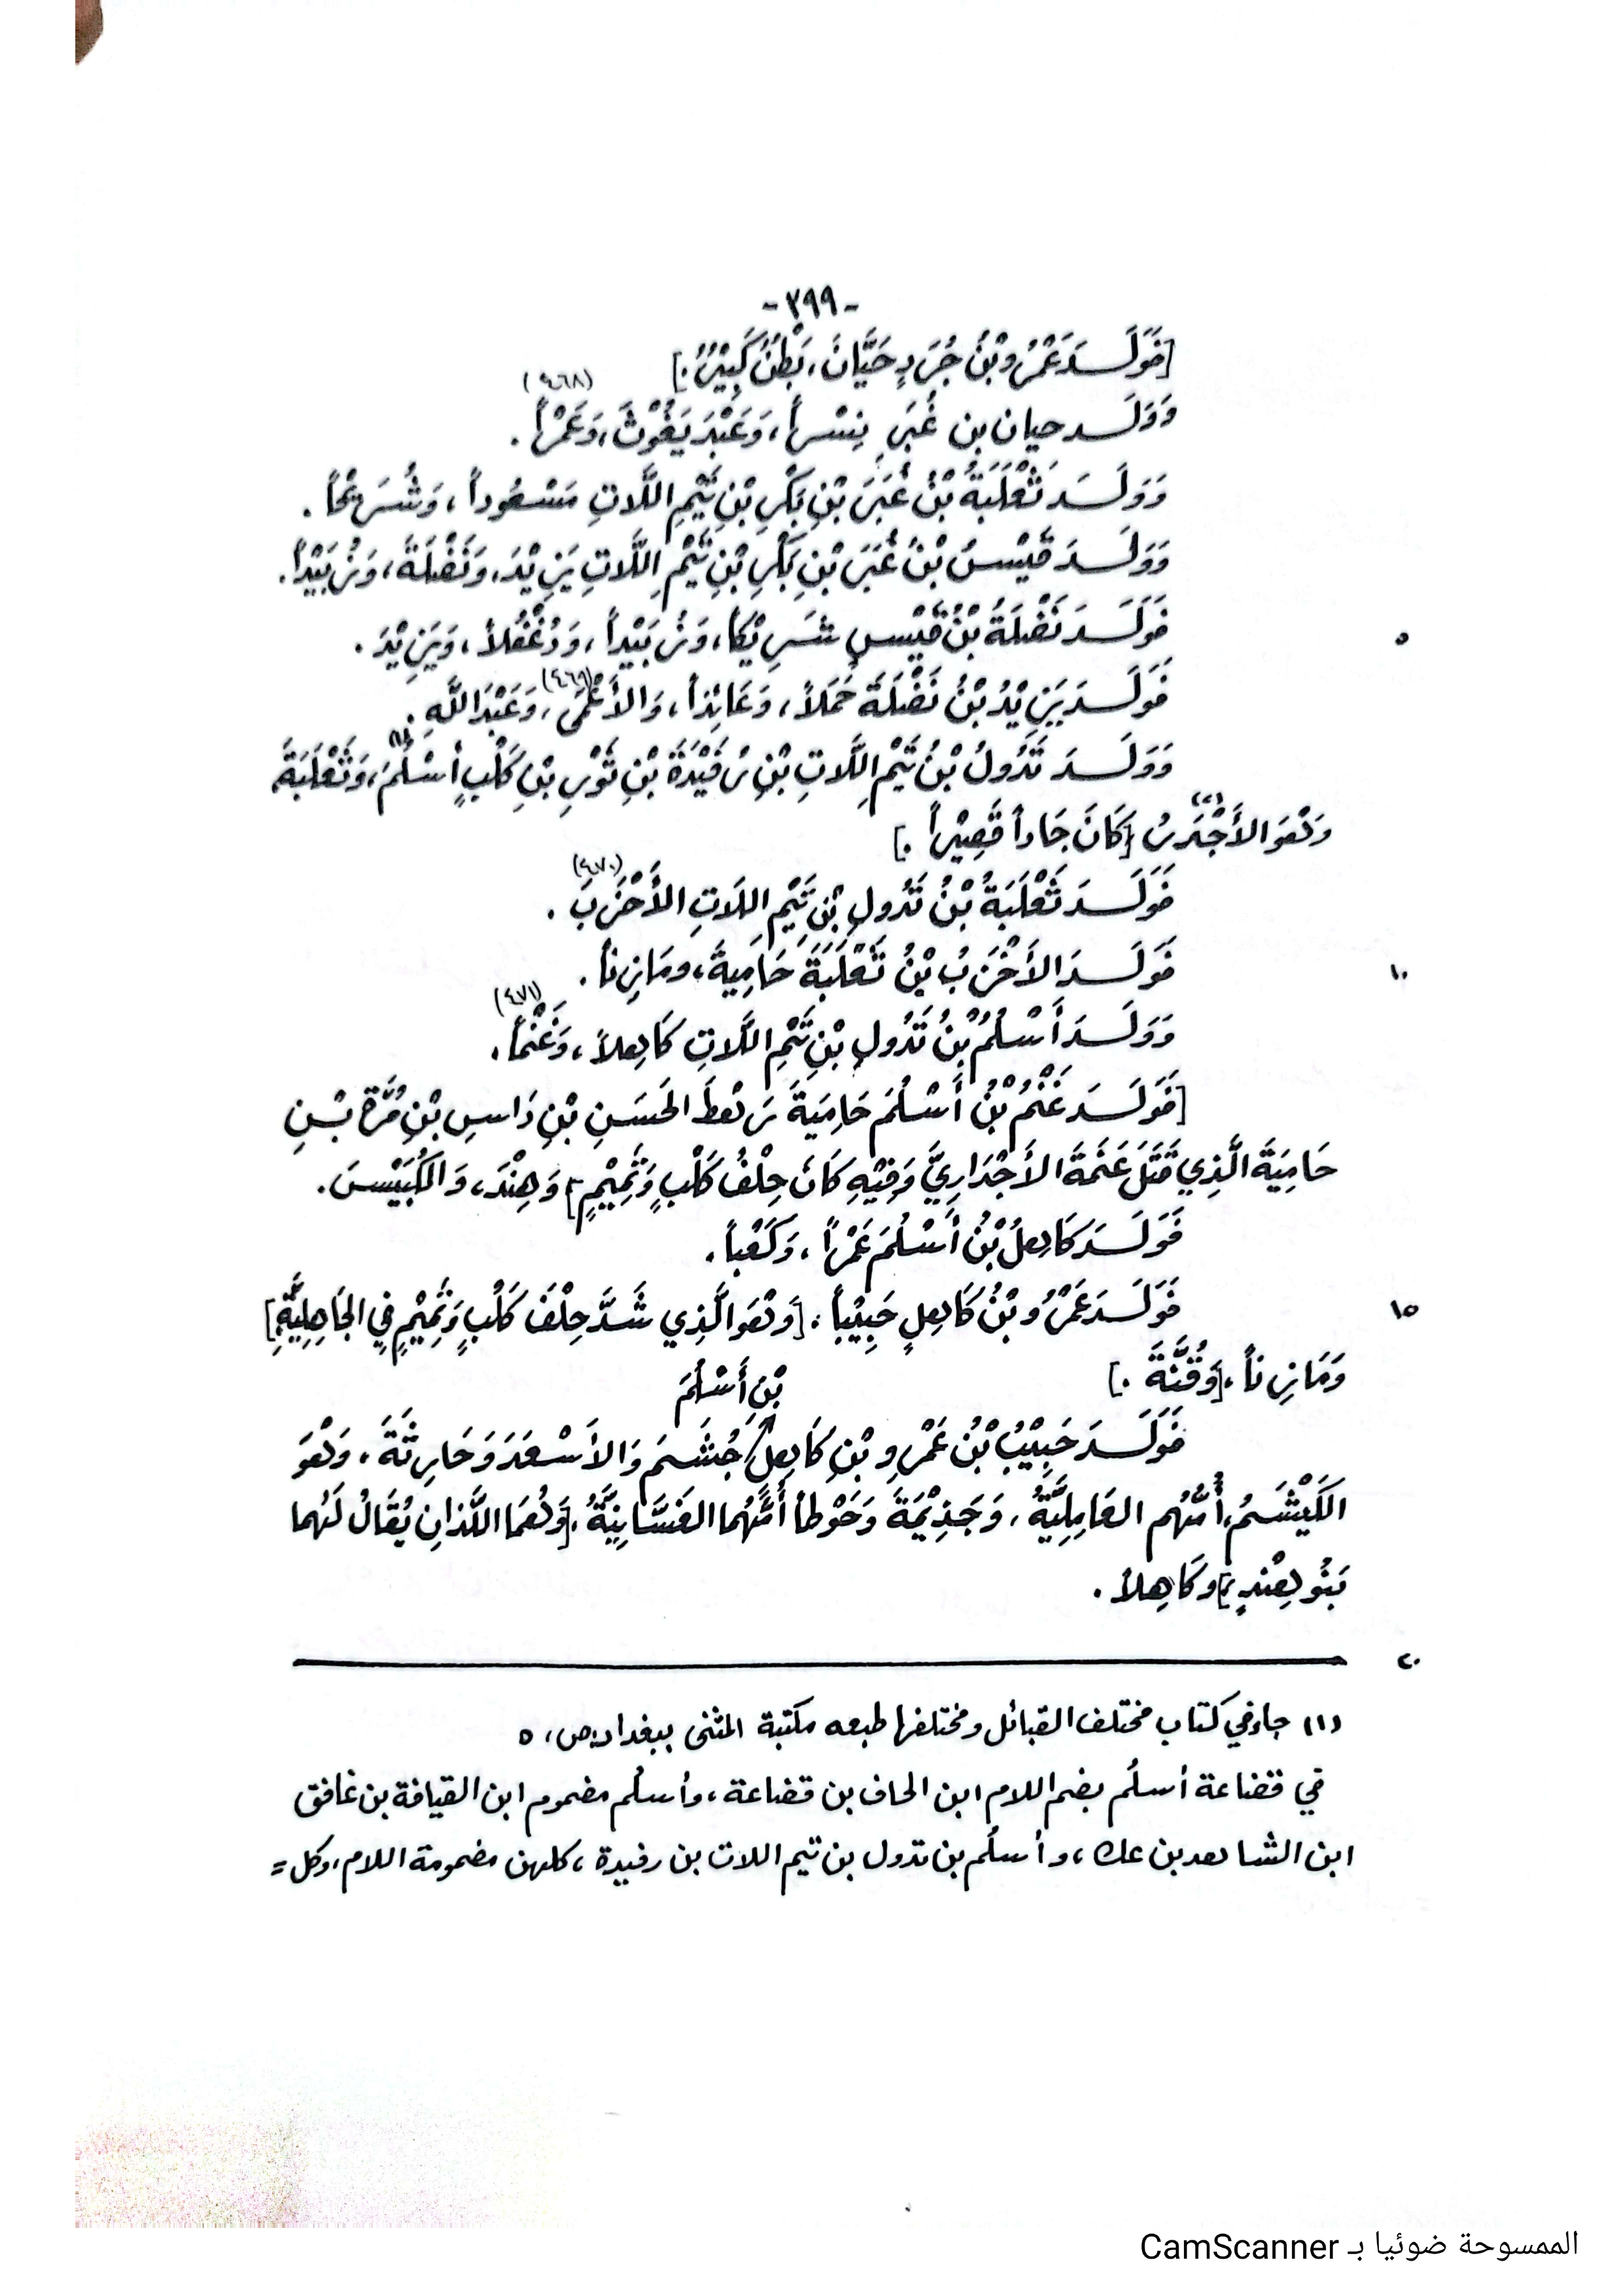 -٣٩٩-
[فَوَلَـــدَ عَمْرُو بْنُ جُرَدٍ حَيَّانَ، بَطْنٌ كَبِيْرٌ.]
(٤٦٨)
وَوَلَـــد حيان بن غُبَرِ نِسْراً، وَعَبْدَ يَغُوْثَ، وَعَمْراً.
وَوَلَـــدَ ثَعْلَبَةُ بْنُ غُبَرَ بْنِ بَكْرِ بْنِ تَيْمِ اللَّاتِ مَسْعُوداً، وَشُرَيْحاً.
وَوَلَـــدَ قَيْسُ بْنُ غُبَرَ بْنِ بَكْرِ بْنِ تَيْمِ اللَّاتِ يَزِيْدَ، وَنَضْلَةَ، وَزُبَيْداً.
فَوَلَـــدَ نَضْلَةُ بْنُ قَيْسٍ شَرِيْكاً، وَزُبَيْداً، وَدُغْفُلاً، وَيَزِيْدَ. ٥
فَوَلَـــدَ يَزِيْدُ بْنُ نَضْلَةَ حَمَلاً، وَعَائِذاً، وَالأَعْمَى (٤٦٩)، وَعَبْدَ اللَّهِ.
وَوَلَـــدَ تَدُولُ بْنُ تَيْمِ اللَّاتِ بْنِ رُفَيْدَةَ بْنِ ثَوْرِ بْنِ كَلْبٍ أَسْلُمَ (١)، وَثَعْلَبَةَ
وَهُوَ الأَجْدَرُ (٢) [كَانَ جَاداً قَصِيْراً.]
فَوَلَـــدَ ثَعْلَبَةُ بْنُ تَدُولِ بْنِ تَيْمِ اللاتِ الأَخْزَبَ (٤٧٠).
فَوَلَـــدَ الأَخْزَبُ بْنُ ثَعْلَبَةَ حَامِيةً، ومَازِناً. ١٠
وَوَلَـــدَ أَسْلُمُ بْنُ تَدُولِ بْنِ تَيْمِ اللَّاتِ كَاهِلاً، وَغَنْماً (٤٧١).
[فَوَلَـــدَ غَنْمُ بْنُ أَسْلُمَ حَامِيَةَ رَهْطَ الحَسَنِ بْنِ دَاسِ بْنِ مُرَّةَ بْـنِ
حَامِيَةَ الَّذِي قَتَلَ عَتْمَةَ الأَجْدَارِيَّ وَفِيْهِ كَانَ حِلْفُ كَلْبٍ وَتَمِيْمٍ] وَهِنْدَ، وَالكُبَيْسَ.
فَوَلَـــدَ كَاهِلُ بْنُ أَسْلُمَ عَمْراً، وَكَعْباً.
فَوَلَـــدَ عَمْرُو بْنُ كَاهِلٍ حَبِيْباً، [وَهُوَ الَّذِي شَدَّ حِلْفَ كَلْبٍ وَتَمِيْمٍ فِي الجَاهِلِيَّةِ] ١٥
وَمَازِناً، [وَقُنَّةَ.]
بْنِ أَسْلُمَ
فَوَلَـــدَ حَبِيْبُ بْنُ عَمْرِو بْنِ كَاهِلٍ جُشَـمَ وَالأَسْعَدَ وَحَارِثَةَ، وَهُوَ
الكَيْشَمُ، أُمُّهُم العَامِلِيَّةُ، وَجَذِيْمَةَ وَحَوْطاً أُمُّهُما الغَسَّانِيَّةُ، [وَهُمَا اللَّذانِ يُقَالُ لَهُما
بَنُو هِنْدٍ،] وكَاهِلاً.
٢٠
(١) جاء في كتاب مختلف القبائل ومختلفها طبعه مكتبة المثنى ببغداد: ص، ٥
في قضاعة أسلُم بضم اللام ابن الحاف بن قضاعة، وأسلُم مضموم ابن القيافة بن غافق
ابن الشاهد بن عك، وأسلُم بن تدول بن تيم اللات بن رفيدة، كلهن مضمومة اللام، وكل =
الممسوحة ضوئيا بـ CamScanner